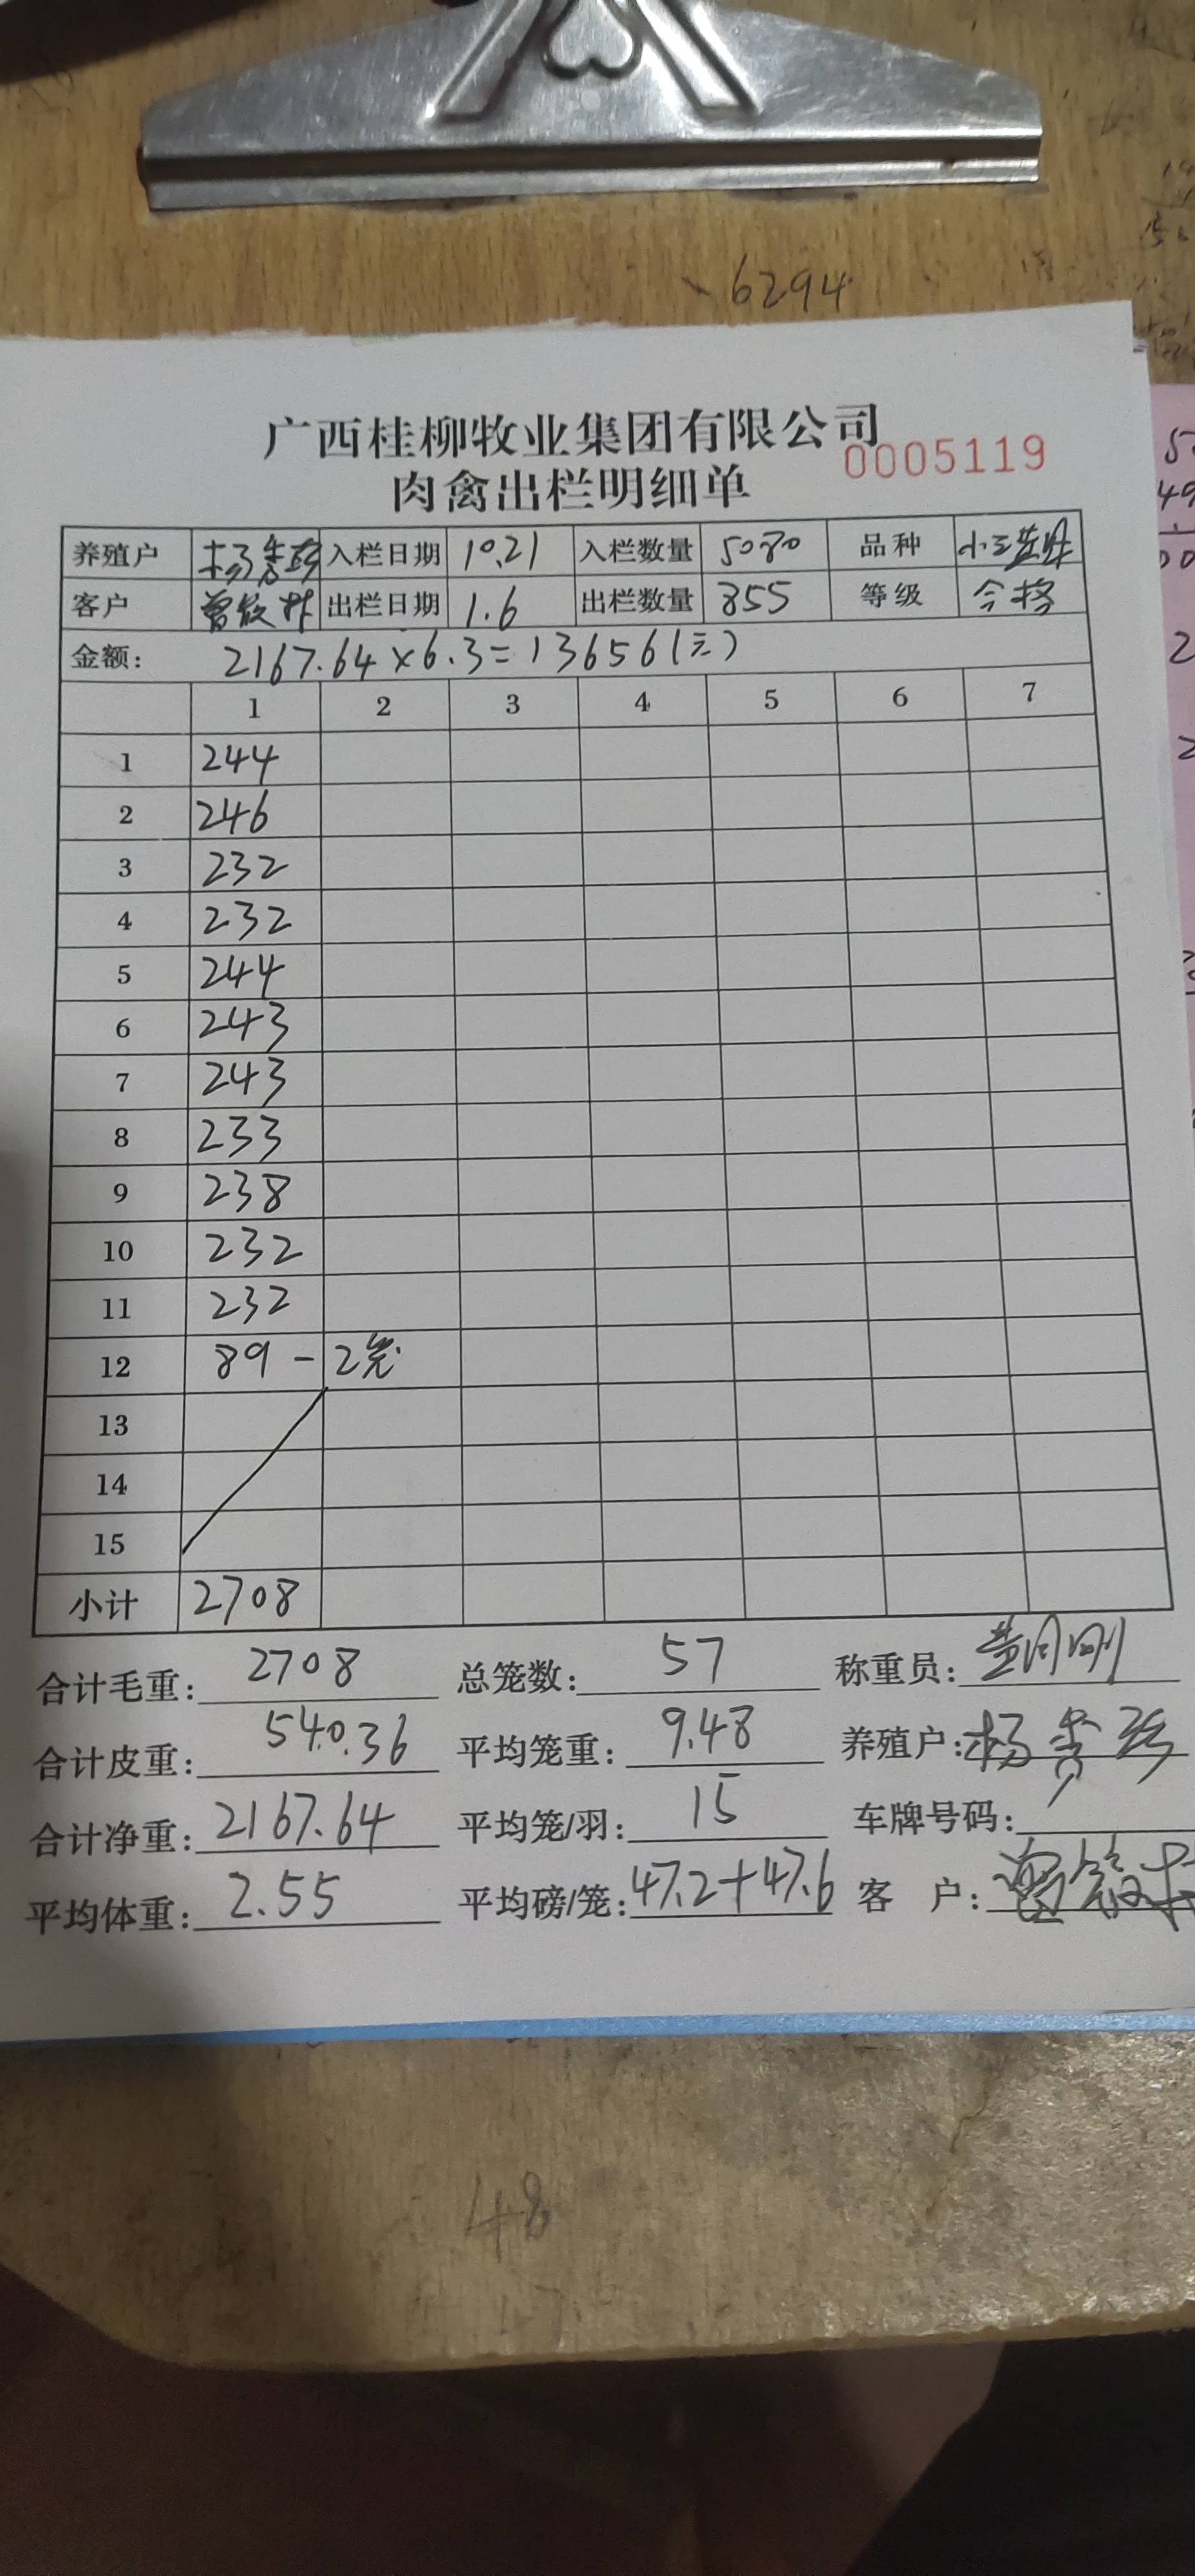 6294
广西桂柳牧业集团有限公司
0005119
肉禽出栏明细单
养殖户 杨秀珍 入栏日期 10.21 入栏数量 5080 品种
客户 出栏日期 1.6 出栏数量 855 等级 合格
金额: 2167.64×6.3=13656(元)
1 2 3 4 5 6 7
1 244
2 246
3 232
4 232
5 244
6 243
7 243
8 233
9 238
10 232
11 232
12 89 - 2笼
13
14
15
小计 2708
合计毛重: 2708 总笼数: 57 称重员:
合计皮重: 540.36 平均笼重: 9.48 养殖户: 杨秀珍
合计净重: 2167.64 平均笼/羽: 15 车牌号码:
平均体重: 2.55 平均磅/笼: 47.2+47.6 客 户:
48